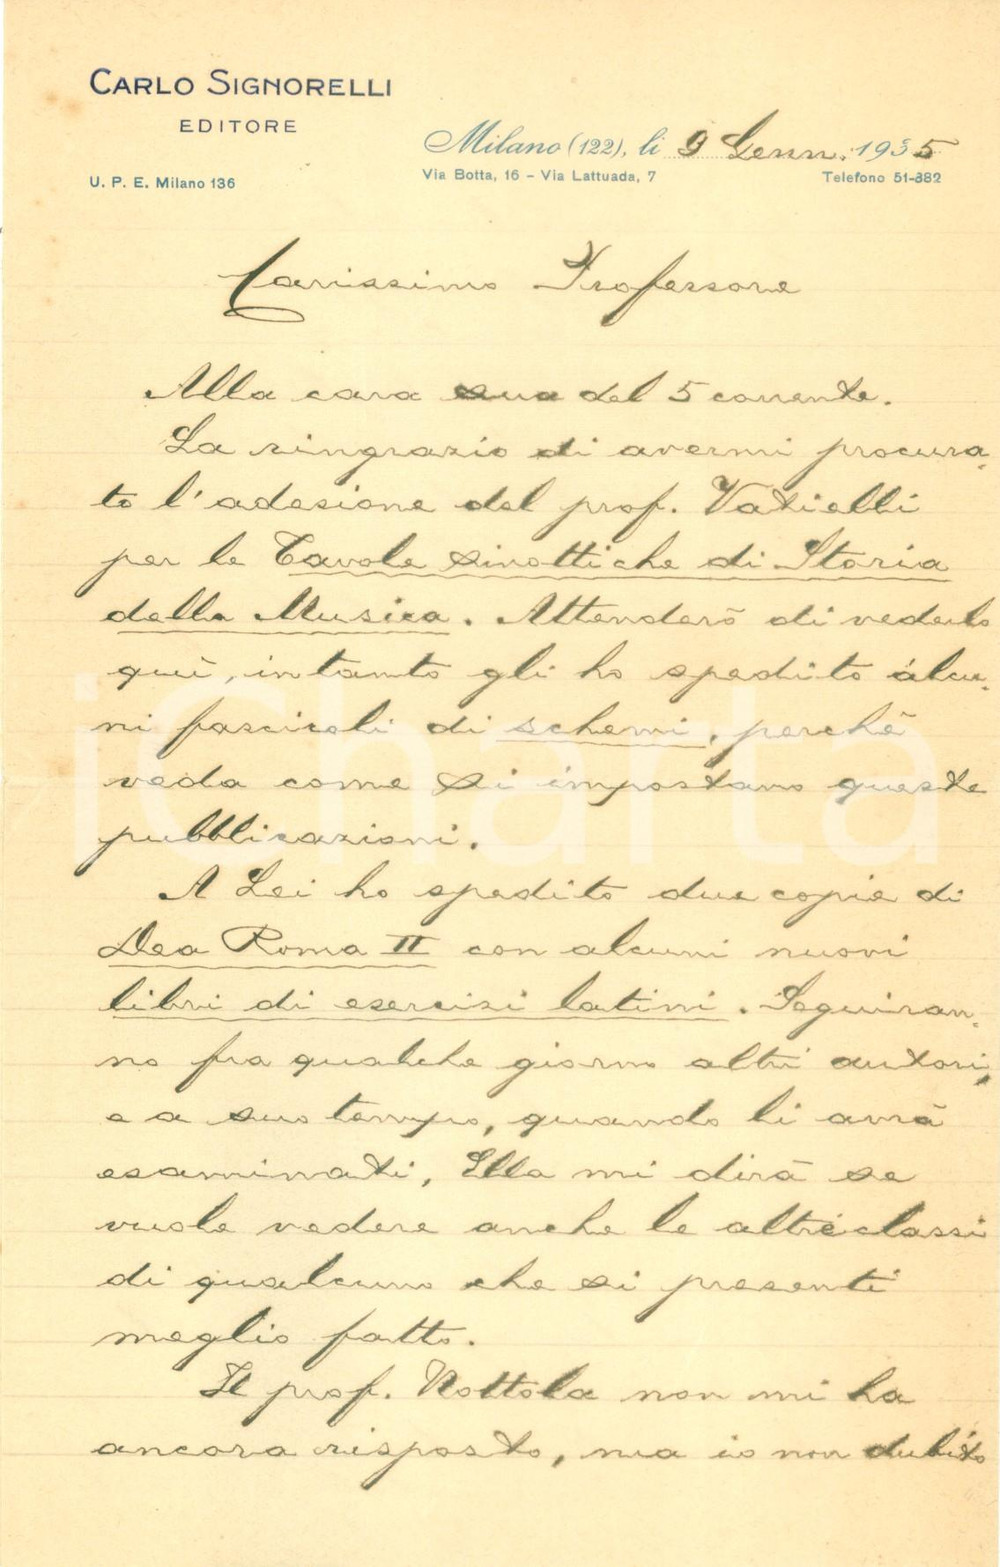 CARLO SIGNORELLI
EDITORE
U. P. E. Milano 136
Milano (122), li 9 Genn. 1935
Via Botta, 16 - Via Lattuada, 7 Telefono 51-382
Carissimo Professore
Alla cara sua del 5 corrente.
La ringrazio di avermi procura-
to l'adesione del prof. Vatielli
per le Tavole sinottiche di Storia
della Musica. Attenderò di vederlo
quì, intanto gli ho spedito alcu-
ni fascicoli di schemi, perchè
veda come si impostano queste
pubblicazioni.
A Lei ho spedito due copie di
Dea Roma II con alcuni nuovi
libri di esercizi latini. Seguiran-
no fra qualche giorno altri autori,
e a suo tempo, quando li avrà
esaminati, Ella mi dirà se
vuole vedere anche le altre classi
di qualcuno che si presenti
meglio fatto.
Il prof. Nottola non mi ha
ancora risposto, ma io non dubito
iCharta